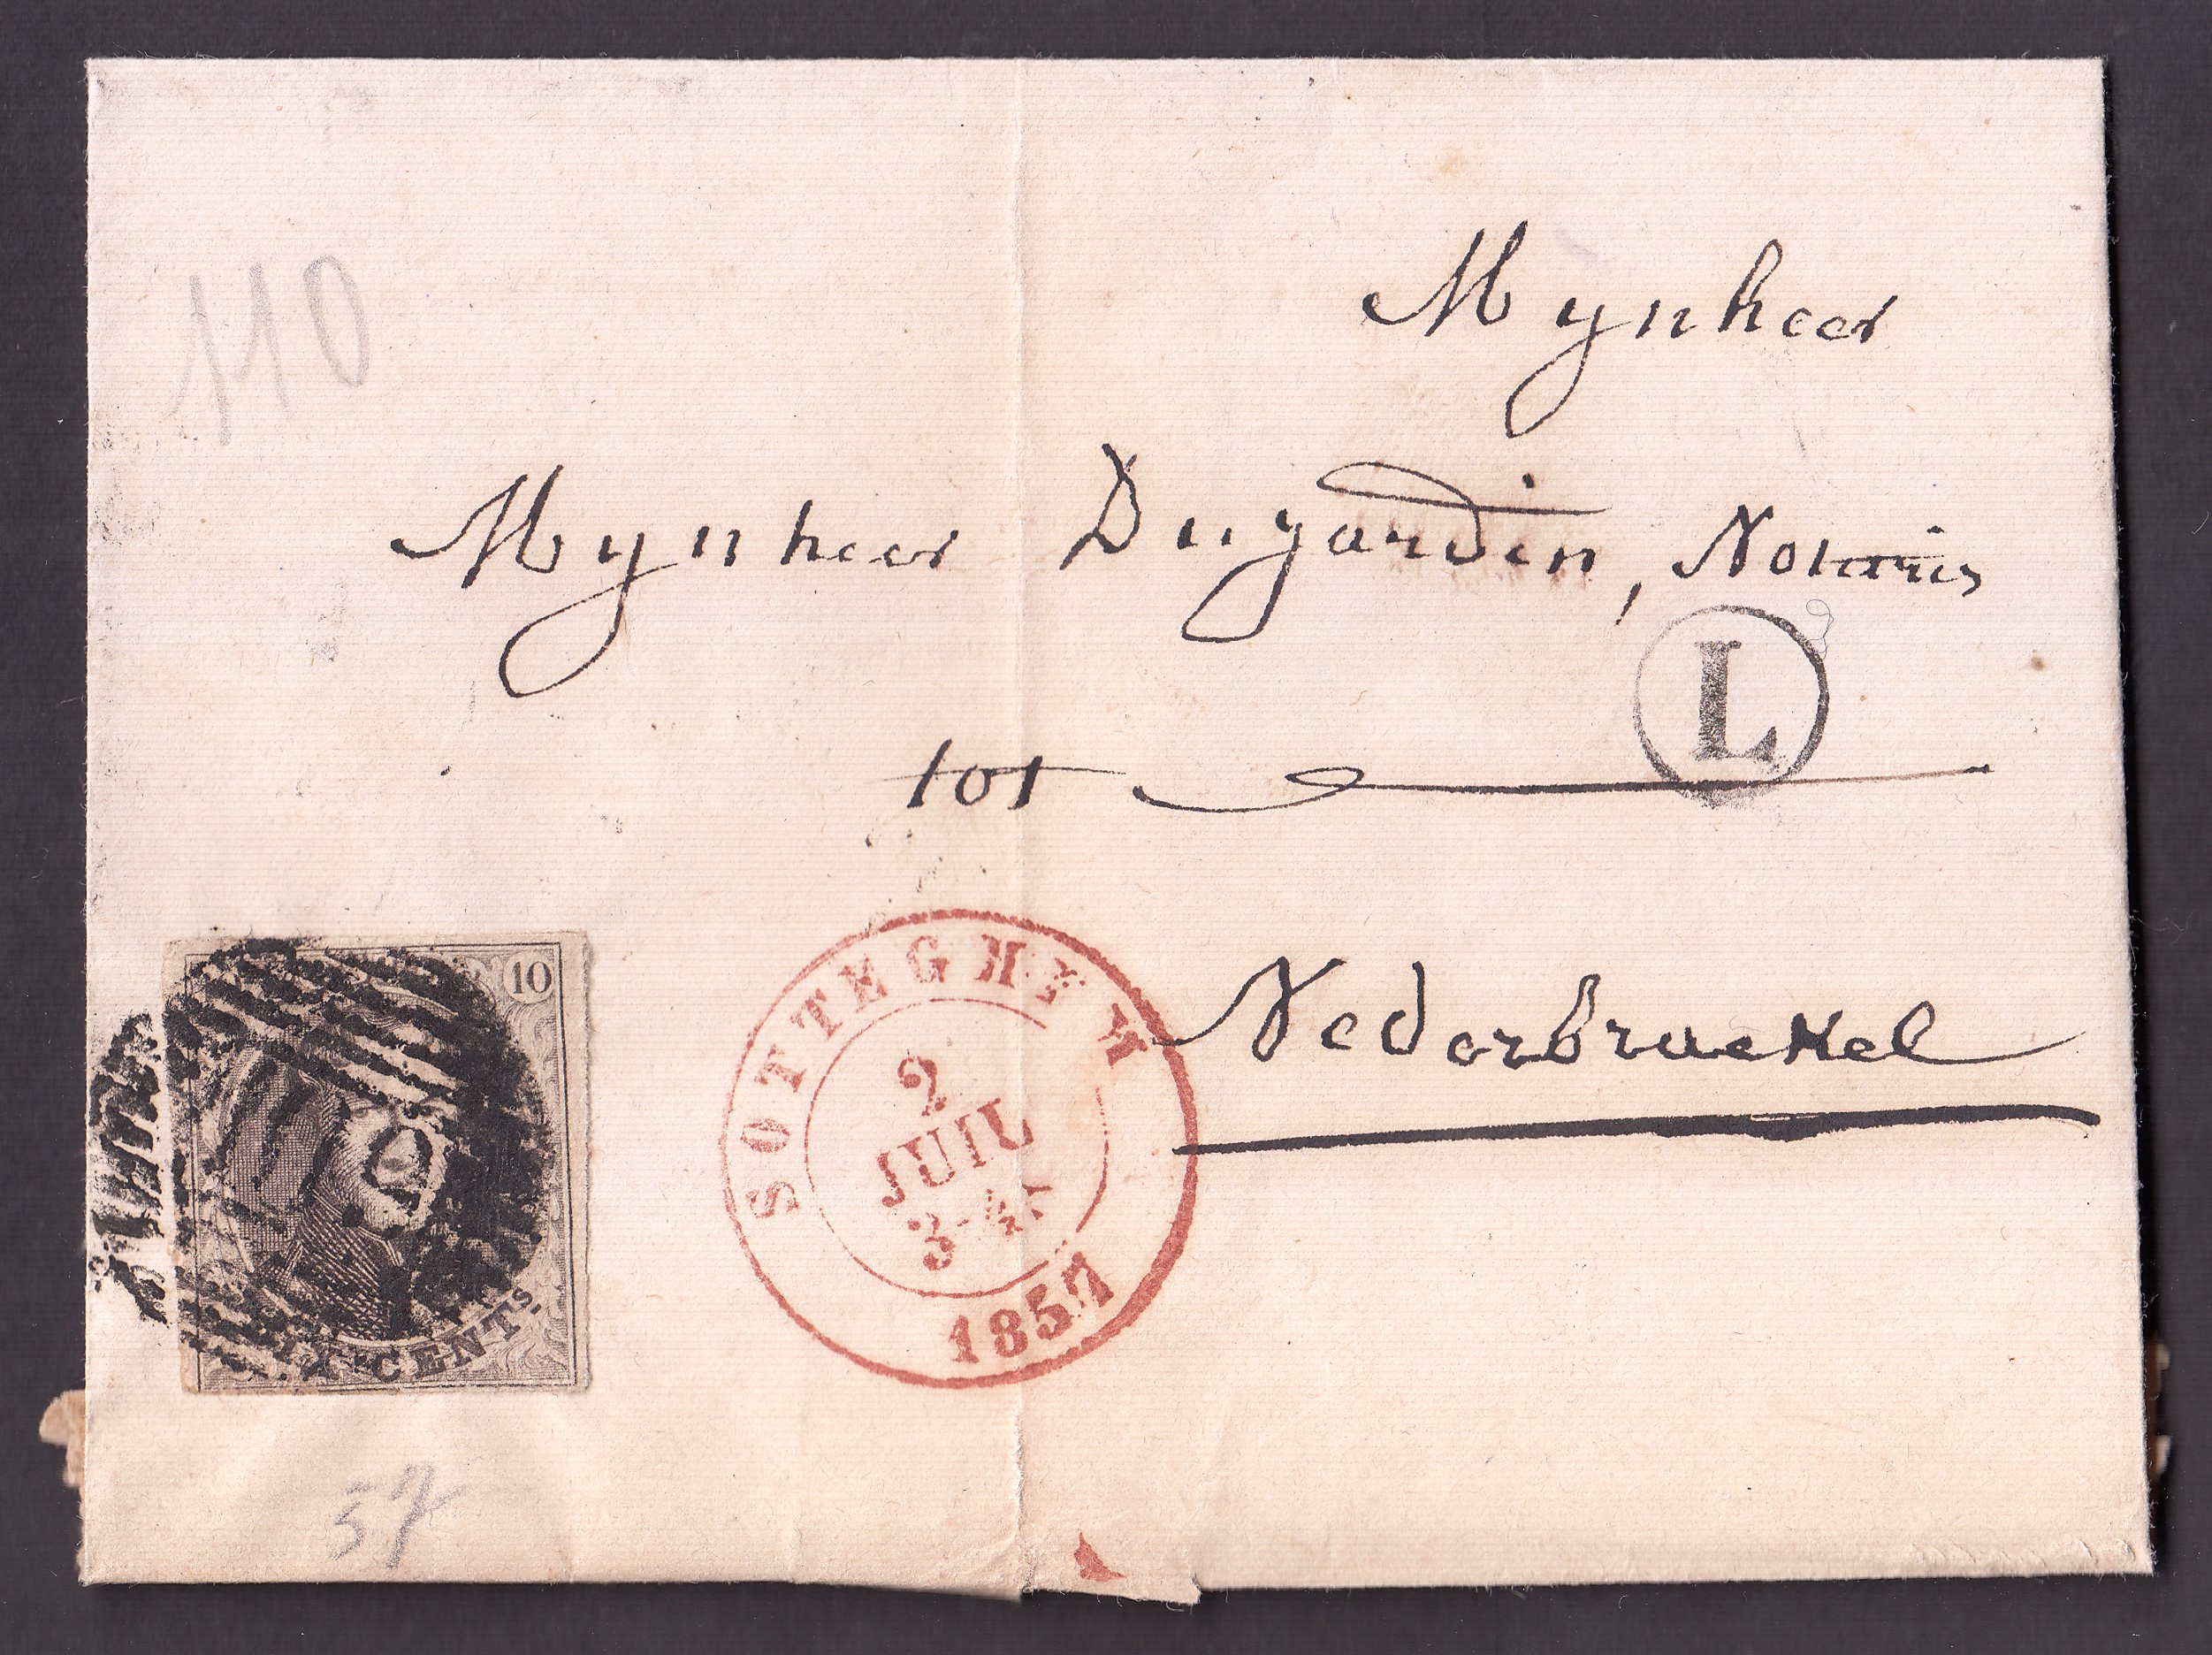 110
Mynheer
Mynheer Dugardin, Notaris
L
tot
Nederbrackel
10
110
DIX CENTS.
SOTTEGHEM
2
JUIL
3-
1857
57